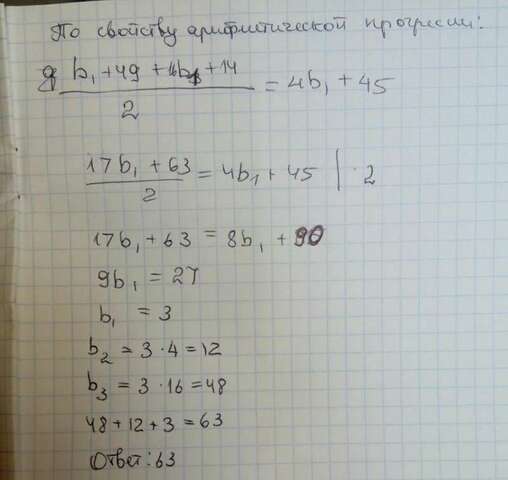 По свойству арифметической прогресии:
(b₁ + 49 + 16b₁ + 14)/2 = 4b₁ + 45
(17b₁ + 63)/2 = 4b₁ + 45 | · 2
17b₁ + 63 = 8b₁ + 90
9b₁ = 27
b₁ = 3
b₂ = 3 · 4 = 12
b₃ = 3 · 16 = 48
48 + 12 + 3 = 63
Ответ: 63